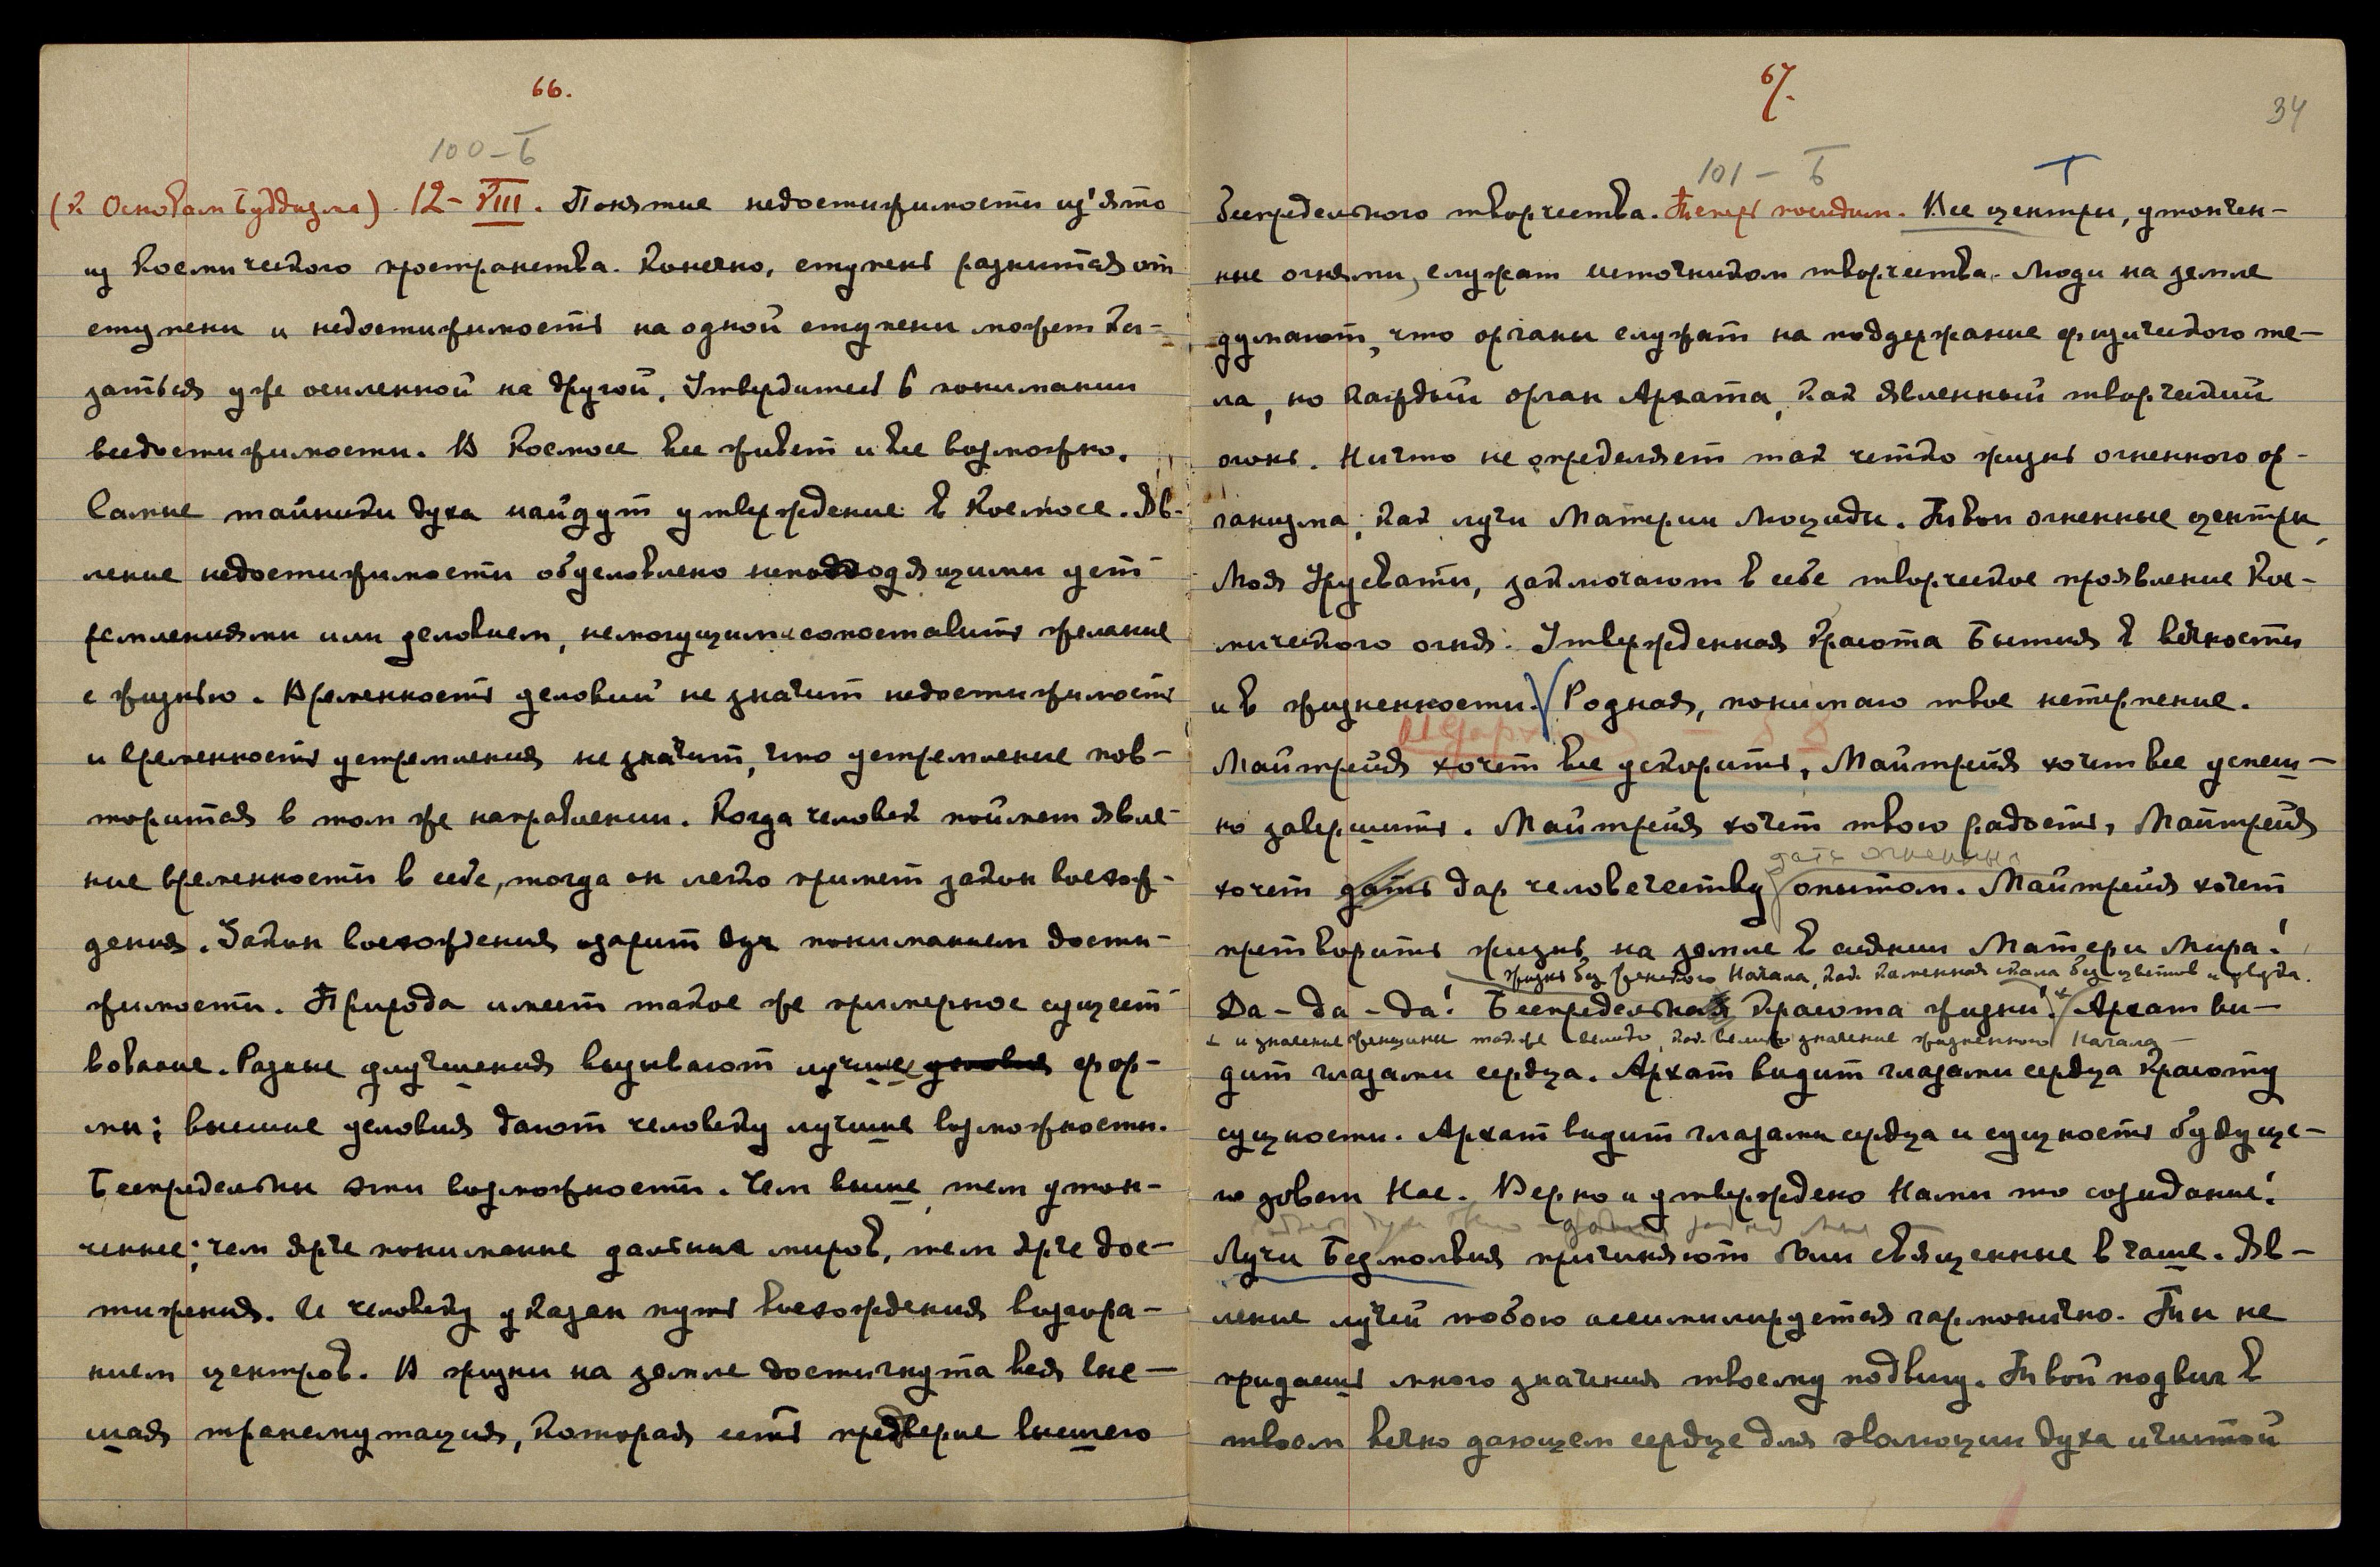 66.
100-Б
(к Основам Буддизма) 12-VIII. Понятие недостижимости из'ято
из Космического пространства. Конечно, ступень разнится от
ступени и недостижимость на одной ступени может ка-
заться уже осиленной на другой. Утвердитесь в понимании
вседостижимости. В Космосе все живет и все возможно.
Самые тайники духа найдут утверждение в Космосе. Яв-
ление недостижимости обусловлено неподходящими уст-
ремлениями или условием, немогущим сопоставить желание
с жизнью. Временность условий не значит недостижимость
и временность устремления не значит, что устремление пов-
торится в том же направлении. Когда человек поймет явле-
ние временности в себе, тогда он легко примет закон восхож-
дения. Закон восхождения озарит дух пониманием дости-
жимости. Природа имеет такое же примерное сущест-
вование. Разные улучшения вызывают лучшие условия фор-
мы; высшие условия дают человеку лучшие возможности.
Беспредельны эти возможности. Чем выше, тем утон-
ченнее; чем ярче понимание дальних миров, тем ярче дос-
тижения. И человеку указан путь восхождения возгора-
нием центров. В жизни на земле достигнута вся выс-
шая трансмутация, которая есть предверие высшего
67.
34
101 - Б
Т
Беспредельного творчества. Теперь посидим. Все центры, утончен-
ные огнями, служат источником творчества. Люди на земле
думают, что органы служат на поддержание физического те-
ла, но каждый орган Архата, как явленный творческий
огонь. Ничто не определяет так четко жизнь огненного ор-
ганизма, как лучи Материи Люциды. Твои огненные центры,
Моя Урусвати, заключают в себе творческое проявление Кос-
мического огня. Утвержденная красота Бытия в вечности
и в жизненности. Родная, понимаю твое нетерпение.
Майтрейя хочет все ускорить, Майтрейя хочет все успеш-
но завершить. Майтрейя хочет твою радость, Майтрейя
дать огненным
хочет дать дар человечеству опытом. Майтрейя хочет
претворить жизнь на земле в сиянии Матери Мира!
жизнь без женского Начала, как каменная скала без цветов и гнезда.
Да - да - да! Беспредельна красота жизни! Архат ви-
и значение женщины также велико, как велико значение жизненного Начала -
дит глазами сердца. Архат видит глазами сердца красоту
сущности. Архат видит глазами сердца и сущность будуще-
го зовет Нас. Верно и утверждено Нами то созидание!
Лучи Безмолвия причиняют боли священные в чаше. Яв-
ление лучей тобою ассимилируется гармонично. Ты не
придаешь много значения твоему подвигу. Твой подвиг в
твоем вечно дающем сердце для эволюции духа и чистой